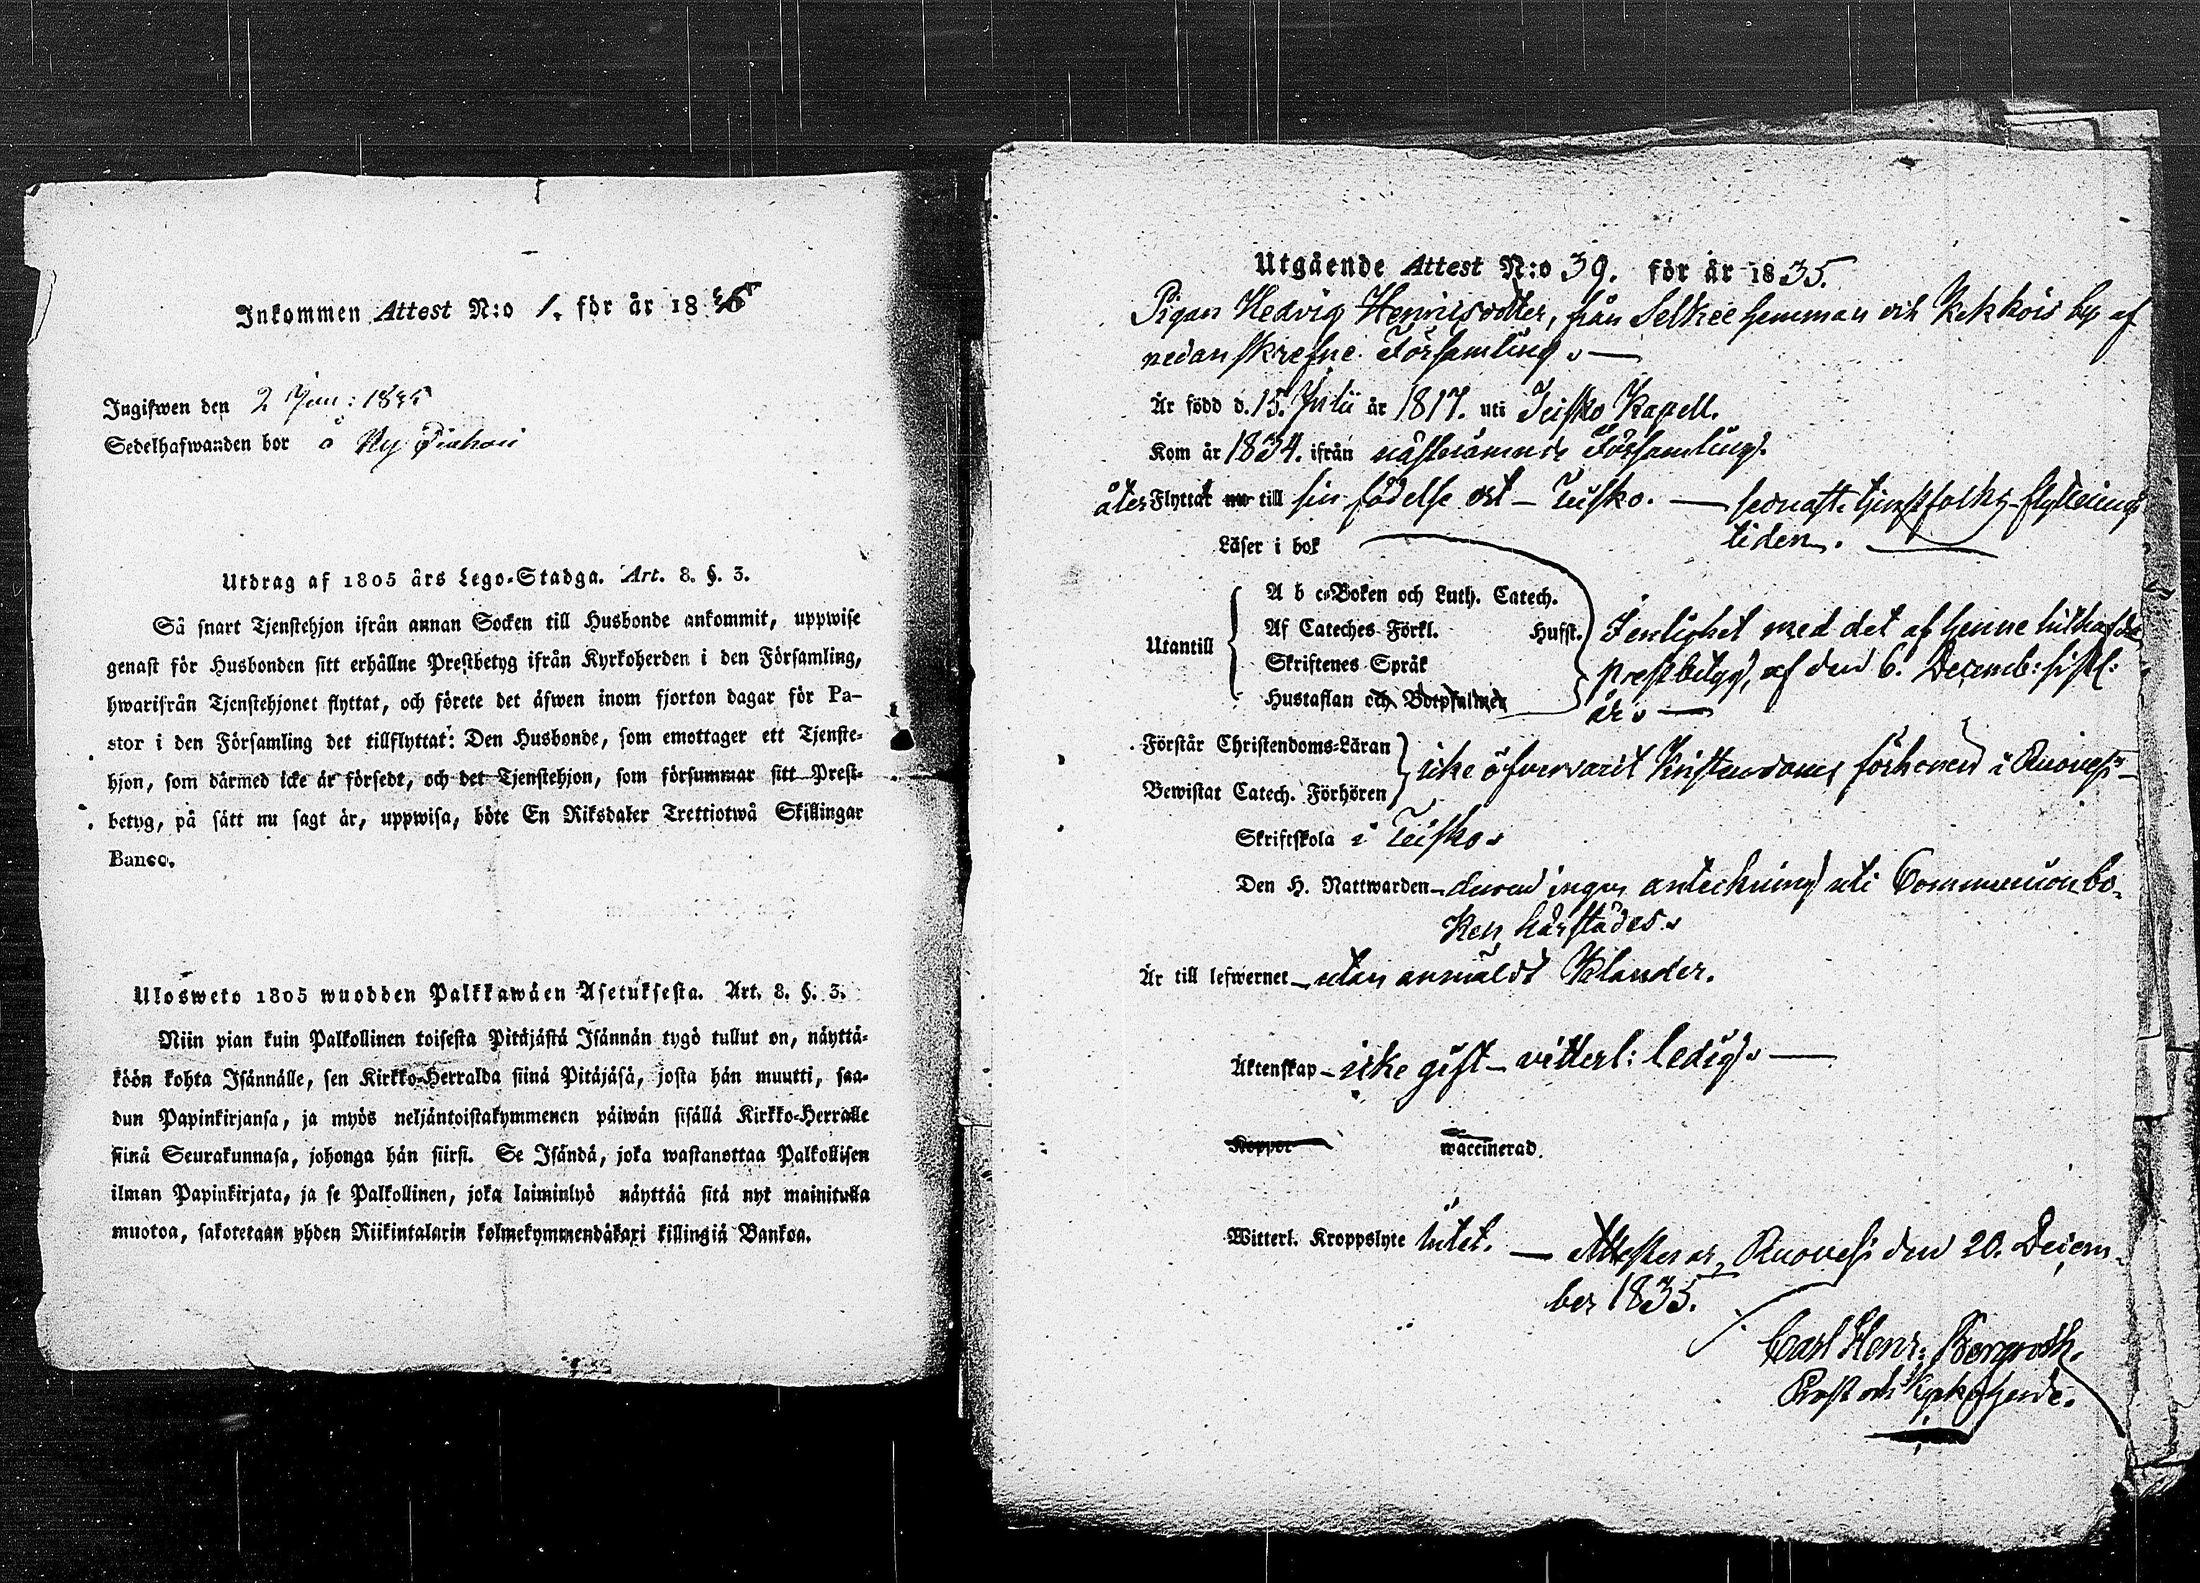 Inkommen Attest N:o 1. för år 18
Ingifwen den 2 Jan: 18
Sedelhafwanden bor å Ny
Utdrag af 1805 års Lego-Stadga. Art. 8. §. 3.
Så snart Tjenstehjon ifrån annan Socken till Husbonde ankommit, uppwise
genast för Husbonden sitt erhållne Prestbetyg ifrån Kyrkoherden i den Församling,
hwarifrån Tjenstehjonet flyttat, och förete det äfwen inom fjorton dagar för Pa-
stor i den Församling det tillflyttat: Den Husbonde, som emottager ett Tjenste-
hjon, som därmed icke är försedt, och det Tjenstehjon, som försummar sitt Prest-
betyg, på sätt nu sagt är, uppwisa, böte En Riksdaler Trettiotwå Skillingar
Banco.
Ulosweto 1805 wuodden Palkkawäen Asetuksesta. Art. 8. §. 3.
Niin pian kuin Palkollinen toisesta Pitäjästä Isännän tygö tullut on, näyttä-
köön kohta Isännälle, sen Kirkko-Herralda siinä Pitäjäsä, josta hän muutti, saa-
dun Papinkirjansa, ja myös neljäntoistakymmenen päiwän sisällä Kirkko-Herralle
siinä Seurakunnasa, johonga hän siirsi. Se Isändä, joka wastanottaa Palkollisen
ilman Papinkirjata, ja se Palkollinen, joka laiminlyö näyttää sitä nyt mainitulla
muotoa, sakotetaan yhden Riikintalarin kolmekymmendäkaxi killingiä Bankoa.
Utgående Attest N:o 39. för år 1835.
Pigan Hedvig Henricsdotter, från Selkee hemman och Kekkois by af
nedanskrefne Församling. —
Är född d. 15. Julii år 1817. uti Teisko Kapell.
Kom år 1834. ifrån nästnämnde Församling.
åter Flyttat nu till sin födelse ort — Teisko. — sednaste tjenstfolks flyttnings
tiden. —
Läser i bok
Utantill
A b c-Boken och Luth. Catech.
Af Cateches Förkl. Hufst. I enlighet med det af henne hithafda
Skriftenes Språk prestbetyg, af den 6. Decemb: sistl:
Hustaflan och Botpsalmer år. —
Förstår Christendoms-Läran
Bewistat Catech. Förhören icke öfvervarit Kristendoms förhören i Ruovesi —
Skriftskola i Teisko.
Den H. Nattwarden — derom ingen anteckning uti Communionbo-
ken härstädes.
Är till lefwernet — utan anmäldt Klander.
Äktenskap — icke gift — vitterl: ledig. —
Koppor waccinerad.
Witterl. Kroppslyte intet. — Attesterar, Ruovesi den 20. Decem-
ber 1835.
Carl Henr: Bergroth.
Prost och Kyrkoherde.